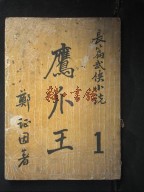 長篇武俠小說
鷹爪王
1
鄭証因著